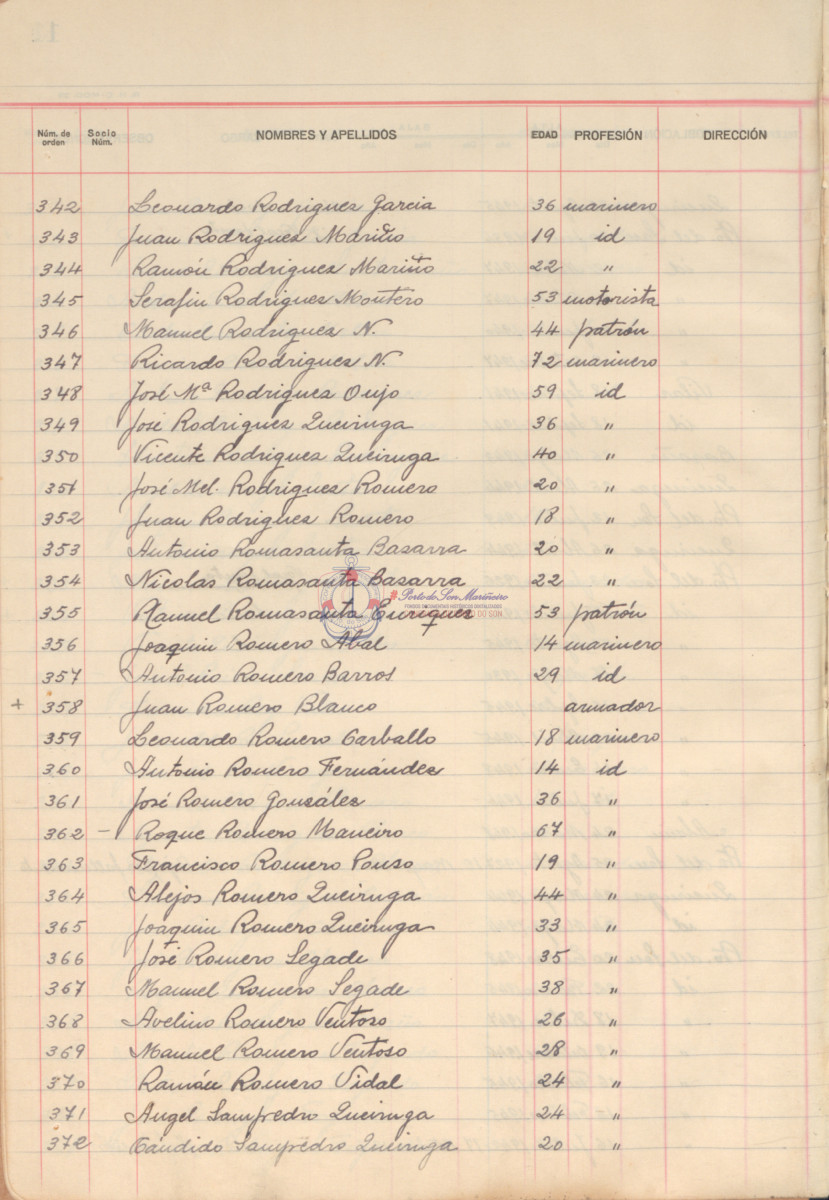 Núm. de orden Socio Núm. NOMBRES Y APELLIDOS EDAD PROFESIÓN DIRECCIÓN
342 Leonardo Rodriguez Garcia 36 marinero
343 Juan Rodriguez Mariño 19 id
344 Ramón Rodriguez Mariño 22 "
345 Serafin Rodriguez Montero 53 motorista
346 Manuel Rodriguez N. 44 patrón
347 Ricardo Rodriguez N. 72 marinero
348 José Mª Rodriguez Oujo 59 id
349 José Rodriguez Queiruga 36 "
350 Vicente Rodriguez Queiruga 40 "
351 José Mel. Rodriguez Romero 20 "
352 Juan Rodriguez Romero 18 "
353 Antonio Romasanta Basarra 20 "
354 Nicolas Romasanta Basarra 22 "
# Porto do Son Mariñeiro
355 Manuel Romasanta Enriquez 53 patrón
356 Joaquin Romero Abal 14 marinero
357 Antonio Romero Barros 29 id
+ 358 Juan Romero Blanco armador
359 Leonardo Romero Carballo 18 marinero
360 Antonio Romero Fernández 14 id
361 José Romero González 36 "
362 – Roque Romero Maneiro 67 "
363 Francisco Romero Pouso 19 "
364 Alejos Romero Queiruga 44 "
365 Joaquin Romero Queiruga 33 "
366 José Romero Segade 35 "
367 Manuel Romero Segade 38 "
368 Avelino Romero Ventoso 26 "
369 Manuel Romero Ventoso 28 "
370 Ramón Romero Vidal 24 "
371 Angel Sampedro Queiruga 24 "
372 Cándido Sampedro Queiruga 20 "